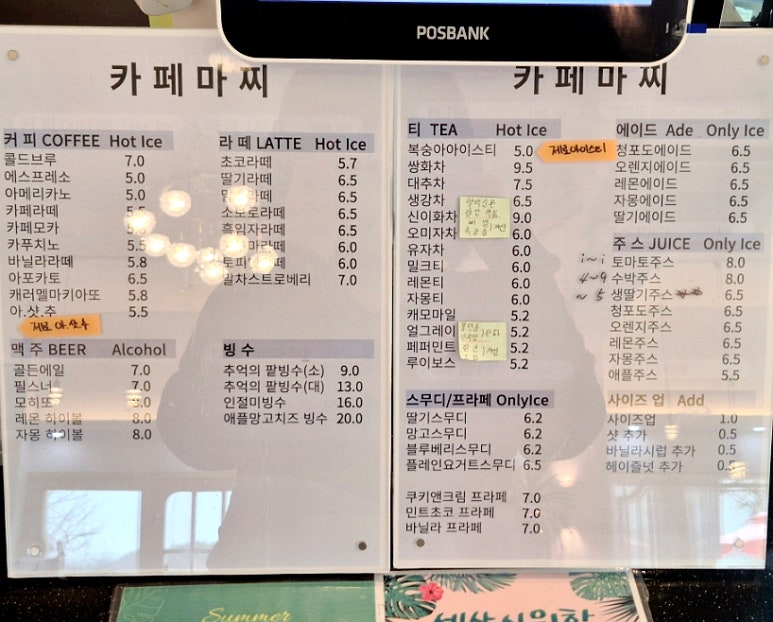 POSBANK
카페마찌
커 피 COFFEE Hot Ice
콜드브루 7.0
에스프레소 5.0
아메리카노 5.0
카페라떼
카페모카
카푸치노 5.5
바닐라라떼 5.8
아포카토 6.5
캐러멜마키아또 5.8
아.샷.추 5.5
제로 아.샷.추
맥 주 BEER Alcohol
골든에일 7.0
필스너 7.0
모히또 8.0
레몬 하이볼 8.0
자몽 하이볼 8.0
라 떼 LATTE Hot Ice
초코라떼 5.7
딸기라떼 6.5
라떼 6.5
소보로라떼 6.5
흑임자라떼 6.5
라떼 6.0
라떼 6.0
말차스트로베리 7.0
빙 수
추억의 팥빙수(소) 9.0
추억의 팥빙수(대) 13.0
인절미빙수 16.0
애플망고치즈 빙수 20.0
카페마찌
티 TEA Hot Ice
복숭아아이스티 5.0
제로아이스티
쌍화차 9.5
대추차 7.5
생강차 6.5
신이화차 9.0
오미자차 6.0
유자차 6.0
밀크티 6.0
레몬티 6.0
자몽티 6.0
캐모마일 5.2
얼그레이 5.2
페퍼민트 5.2
루이보스 5.2
스무디/프라페 OnlyIce
딸기스무디 6.2
망고스무디 6.2
블루베리스무디 6.2
플레인요거트스무디 6.5
쿠키앤크림 프라페 7.0
민트초코 프라페 7.0
바닐라 프라페 7.0
에이드 Ade Only Ice
청포도에이드 6.5
오렌지에이드 6.5
레몬에이드 6.5
자몽에이드 6.5
딸기에이드 6.5
주 스 JUICE Only Ice
토마토주스 8.0
4~9 수박주스 8.0
~5 생딸기주스 6.5
청포도주스 6.5
오렌지주스 6.5
레몬주스 6.5
자몽주스 6.5
애플주스 5.5
사이즈 업 Add
사이즈업 1.0
샷 추가 0.5
바닐라시럽 추가 0.5
헤이즐넛 추가 0.5
Summer